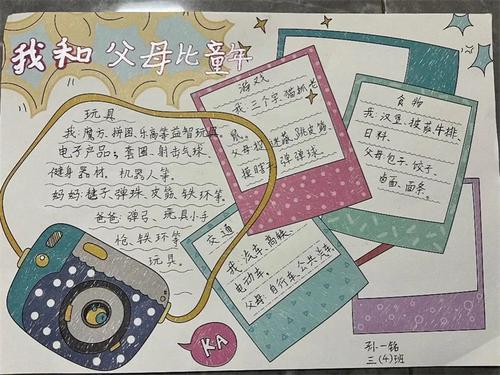 我和父母比童年
玩具
我:魔方、拼图、乐高等益智玩具,
电子产品;套圈、射击气球、
健身器材、机器人等。
妈妈:毽子、弹珠、皮筋、铁环等。
爸爸:弹弓、玩具小手
枪、铁环等
玩具。
游戏
我:三个字、猫抓老
鼠。
父母:捉迷藏、跳皮筋、
摸瞎子、弹弹球。
食物
我:汉堡、披萨、牛排、
日料。
父母:包子、饺子、
卤面、面条。
交通
我:汽车、高铁、
电动车。
父母:自行车、公共汽车。
KA
孙一铭
三(4)班